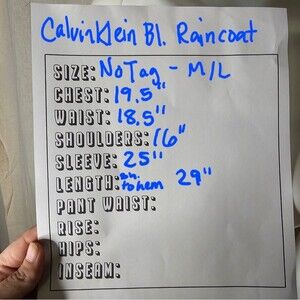 Calvin Klein Bl. Raincoat
SIZE: No Tag - M/L
CHEST: 19.5"
WAIST: 18.5"
SHOULDERS: 16"
SLEEVE: 25"
LENGTH: sh. to hem 29"
PANT WAIST:
RISE:
HIPS:
INSEAM: